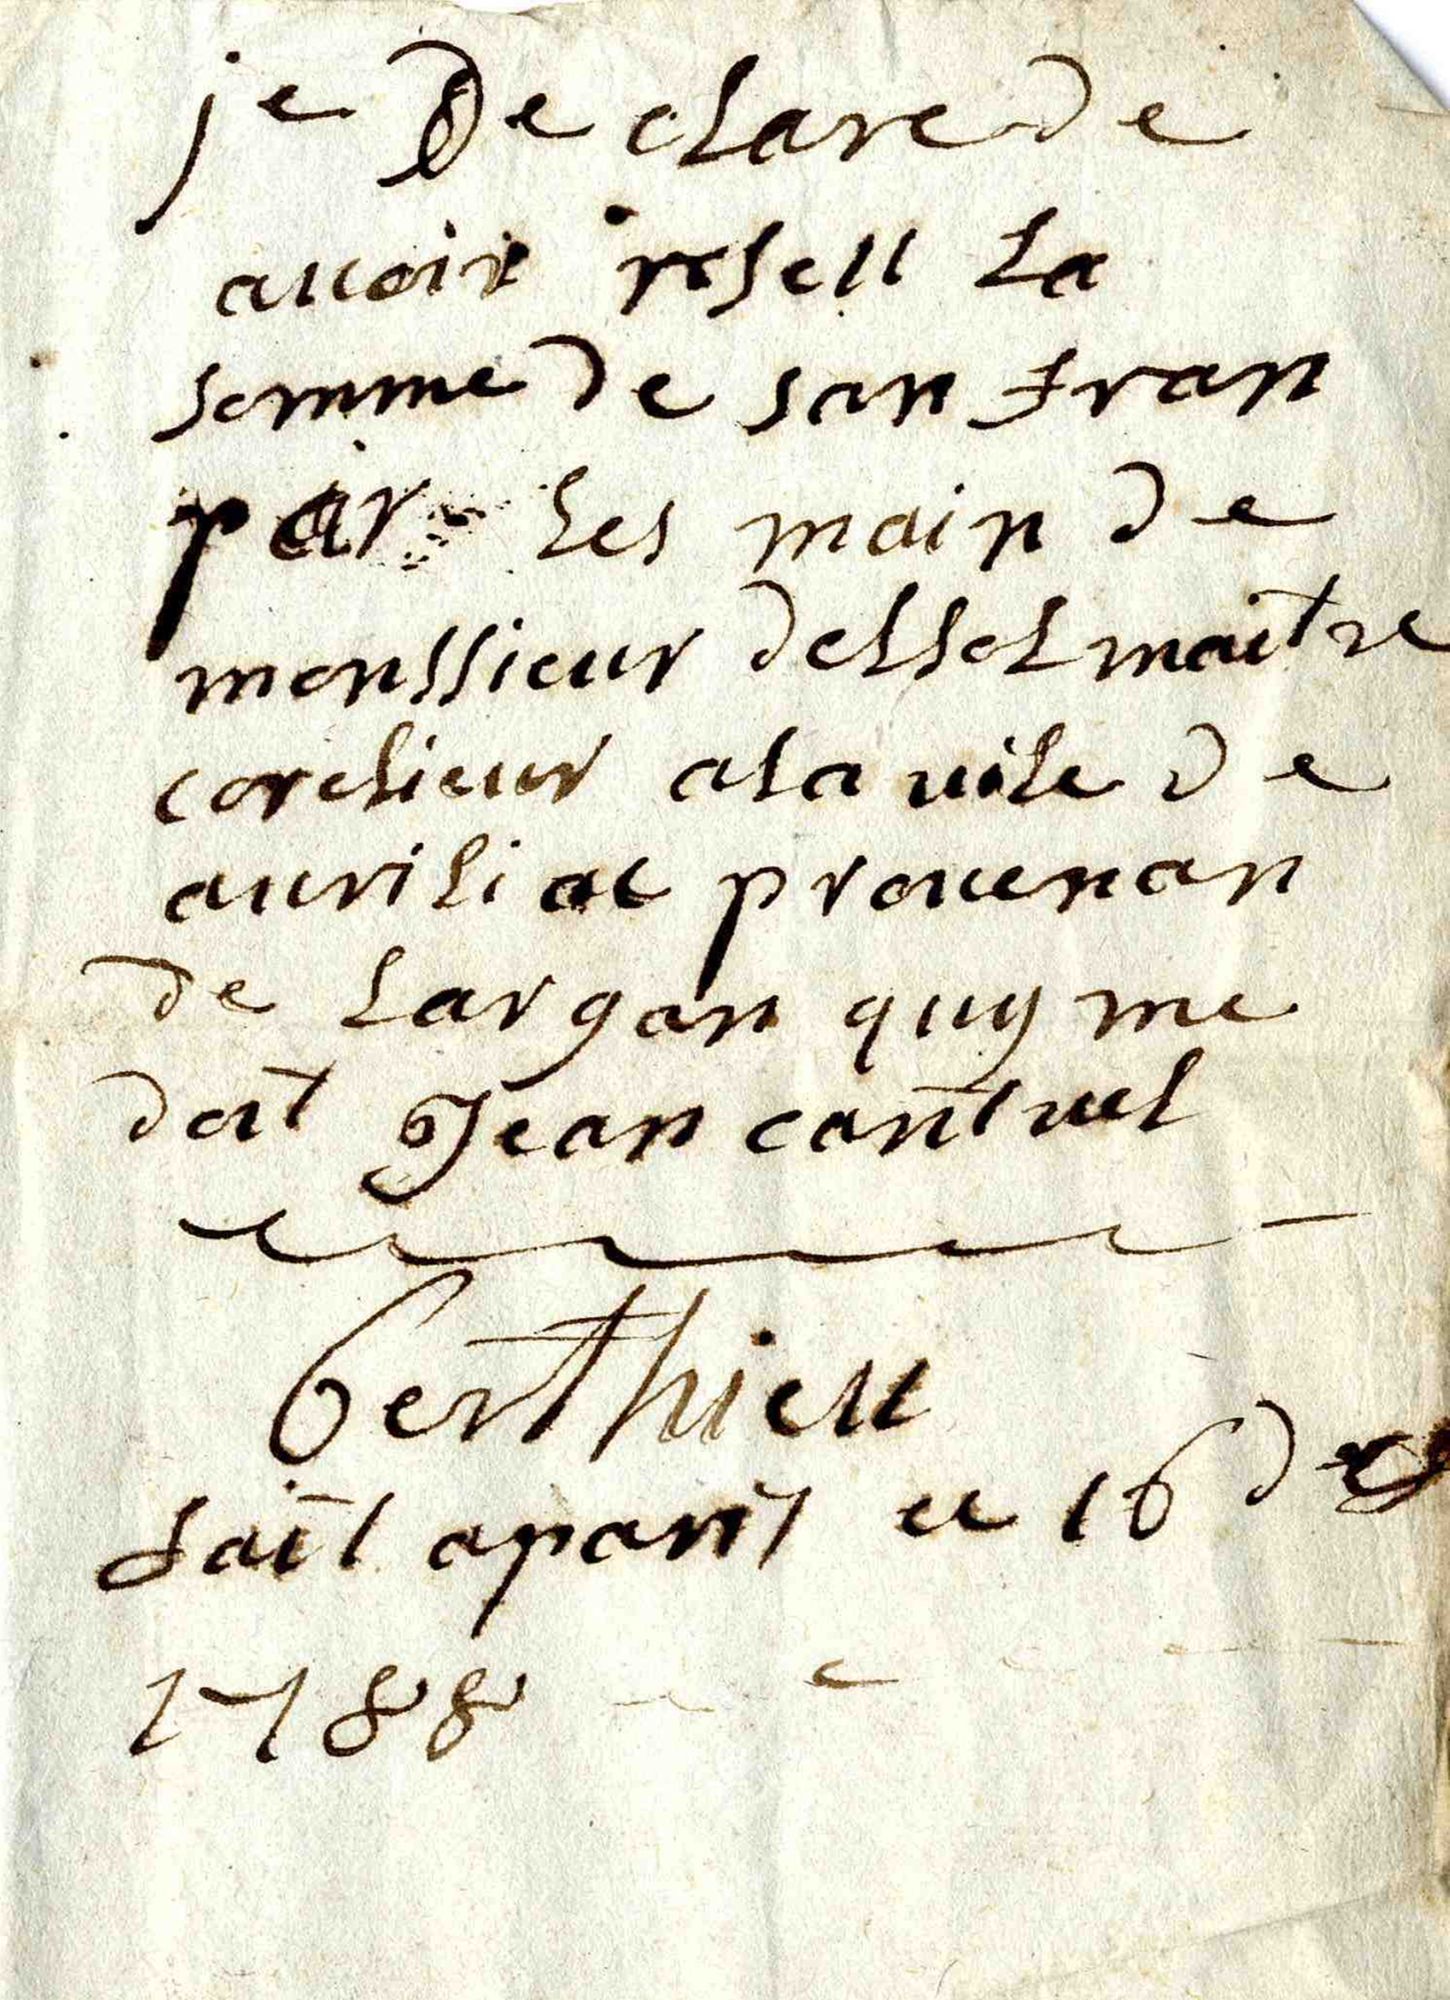 je De clare de
auoir reseu la
somme de san fran
par les main de
monssieur delsol maitre
cordieur a la vile de
auriliac prouenan
de largan quy me
doit Jean cantuel
berthieu
fait a parit ce 16 de
1788